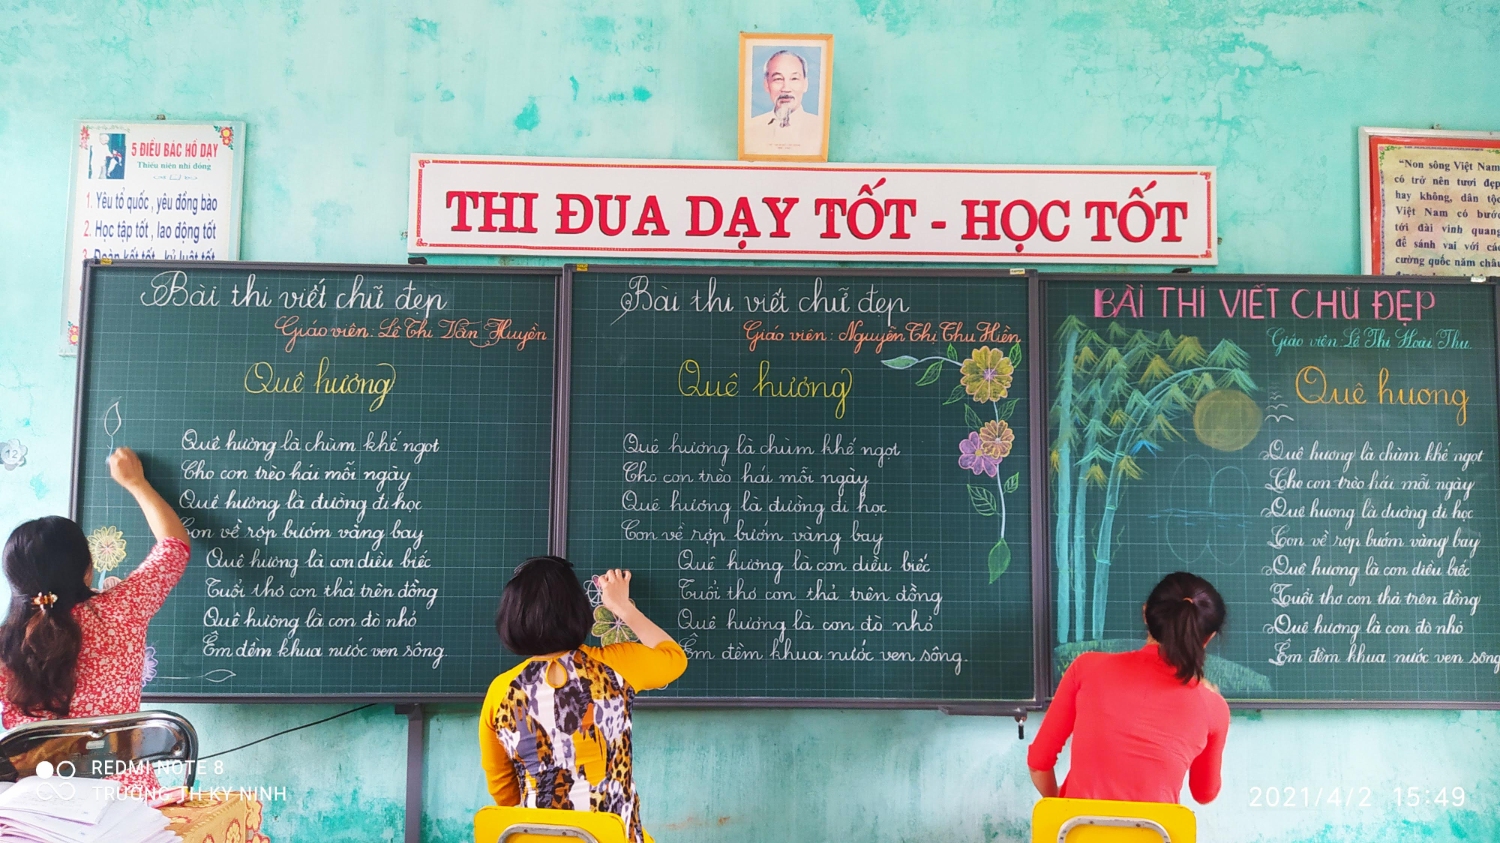 5 ĐIỀU BÁC HỒ DẠY
Thiếu niên nhi đồng
1. Yêu tổ quốc, yêu đồng bào
2. Học tập tốt, lao động tốt
3. Đoàn kết tốt, kỷ luật tốt
THI ĐUA DẠY TỐT - HỌC TỐT
"Non sông Việt Nam
có trở nên tươi đẹp
hay không, dân tộc
Việt Nam có bước
tới đài vinh quang
để sánh vai với các
cường quốc năm châu
Bài thi viết chữ đẹp
Giáo viên: Lê Thị Vân Huyền
Quê hương
Quê hương là chùm khế ngọt
Cho con trèo hái mỗi ngày
Quê hương là đường đi học
Con về rợp bướm vàng bay
Quê hương là con diều biếc
Tuổi thơ con thả trên đồng
Quê hương là con đò nhỏ
Êm đềm khua nước ven sông.
Bài thi viết chữ đẹp
Giáo viên: Nguyễn Thị Thu Hiền
Quê hương
Quê hương là chùm khế ngọt
Cho con trèo hái mỗi ngày
Quê hương là đường đi học
Con về rợp bướm vàng bay
Quê hương là con diều biếc
Tuổi thơ con thả trên đồng
Quê hương là con đò nhỏ
Êm đềm khua nước ven sông.
BÀI THI VIẾT CHỮ ĐẸP
Giáo viên: Lê Thị Hoài Thu
Quê hương
Quê hương là chùm khế ngọt
Cho con trèo hái mỗi ngày
Quê hương là đường đi học
Con về rợp bướm vàng bay
Quê hương là con diều biếc
Tuổi thơ con thả trên đồng
Quê hương là con đò nhỏ
Êm đềm khua nước ven sông
12
REDMI NOTE 8
TRƯỜNG TH KỲ NINH
2021/4/2 15:49